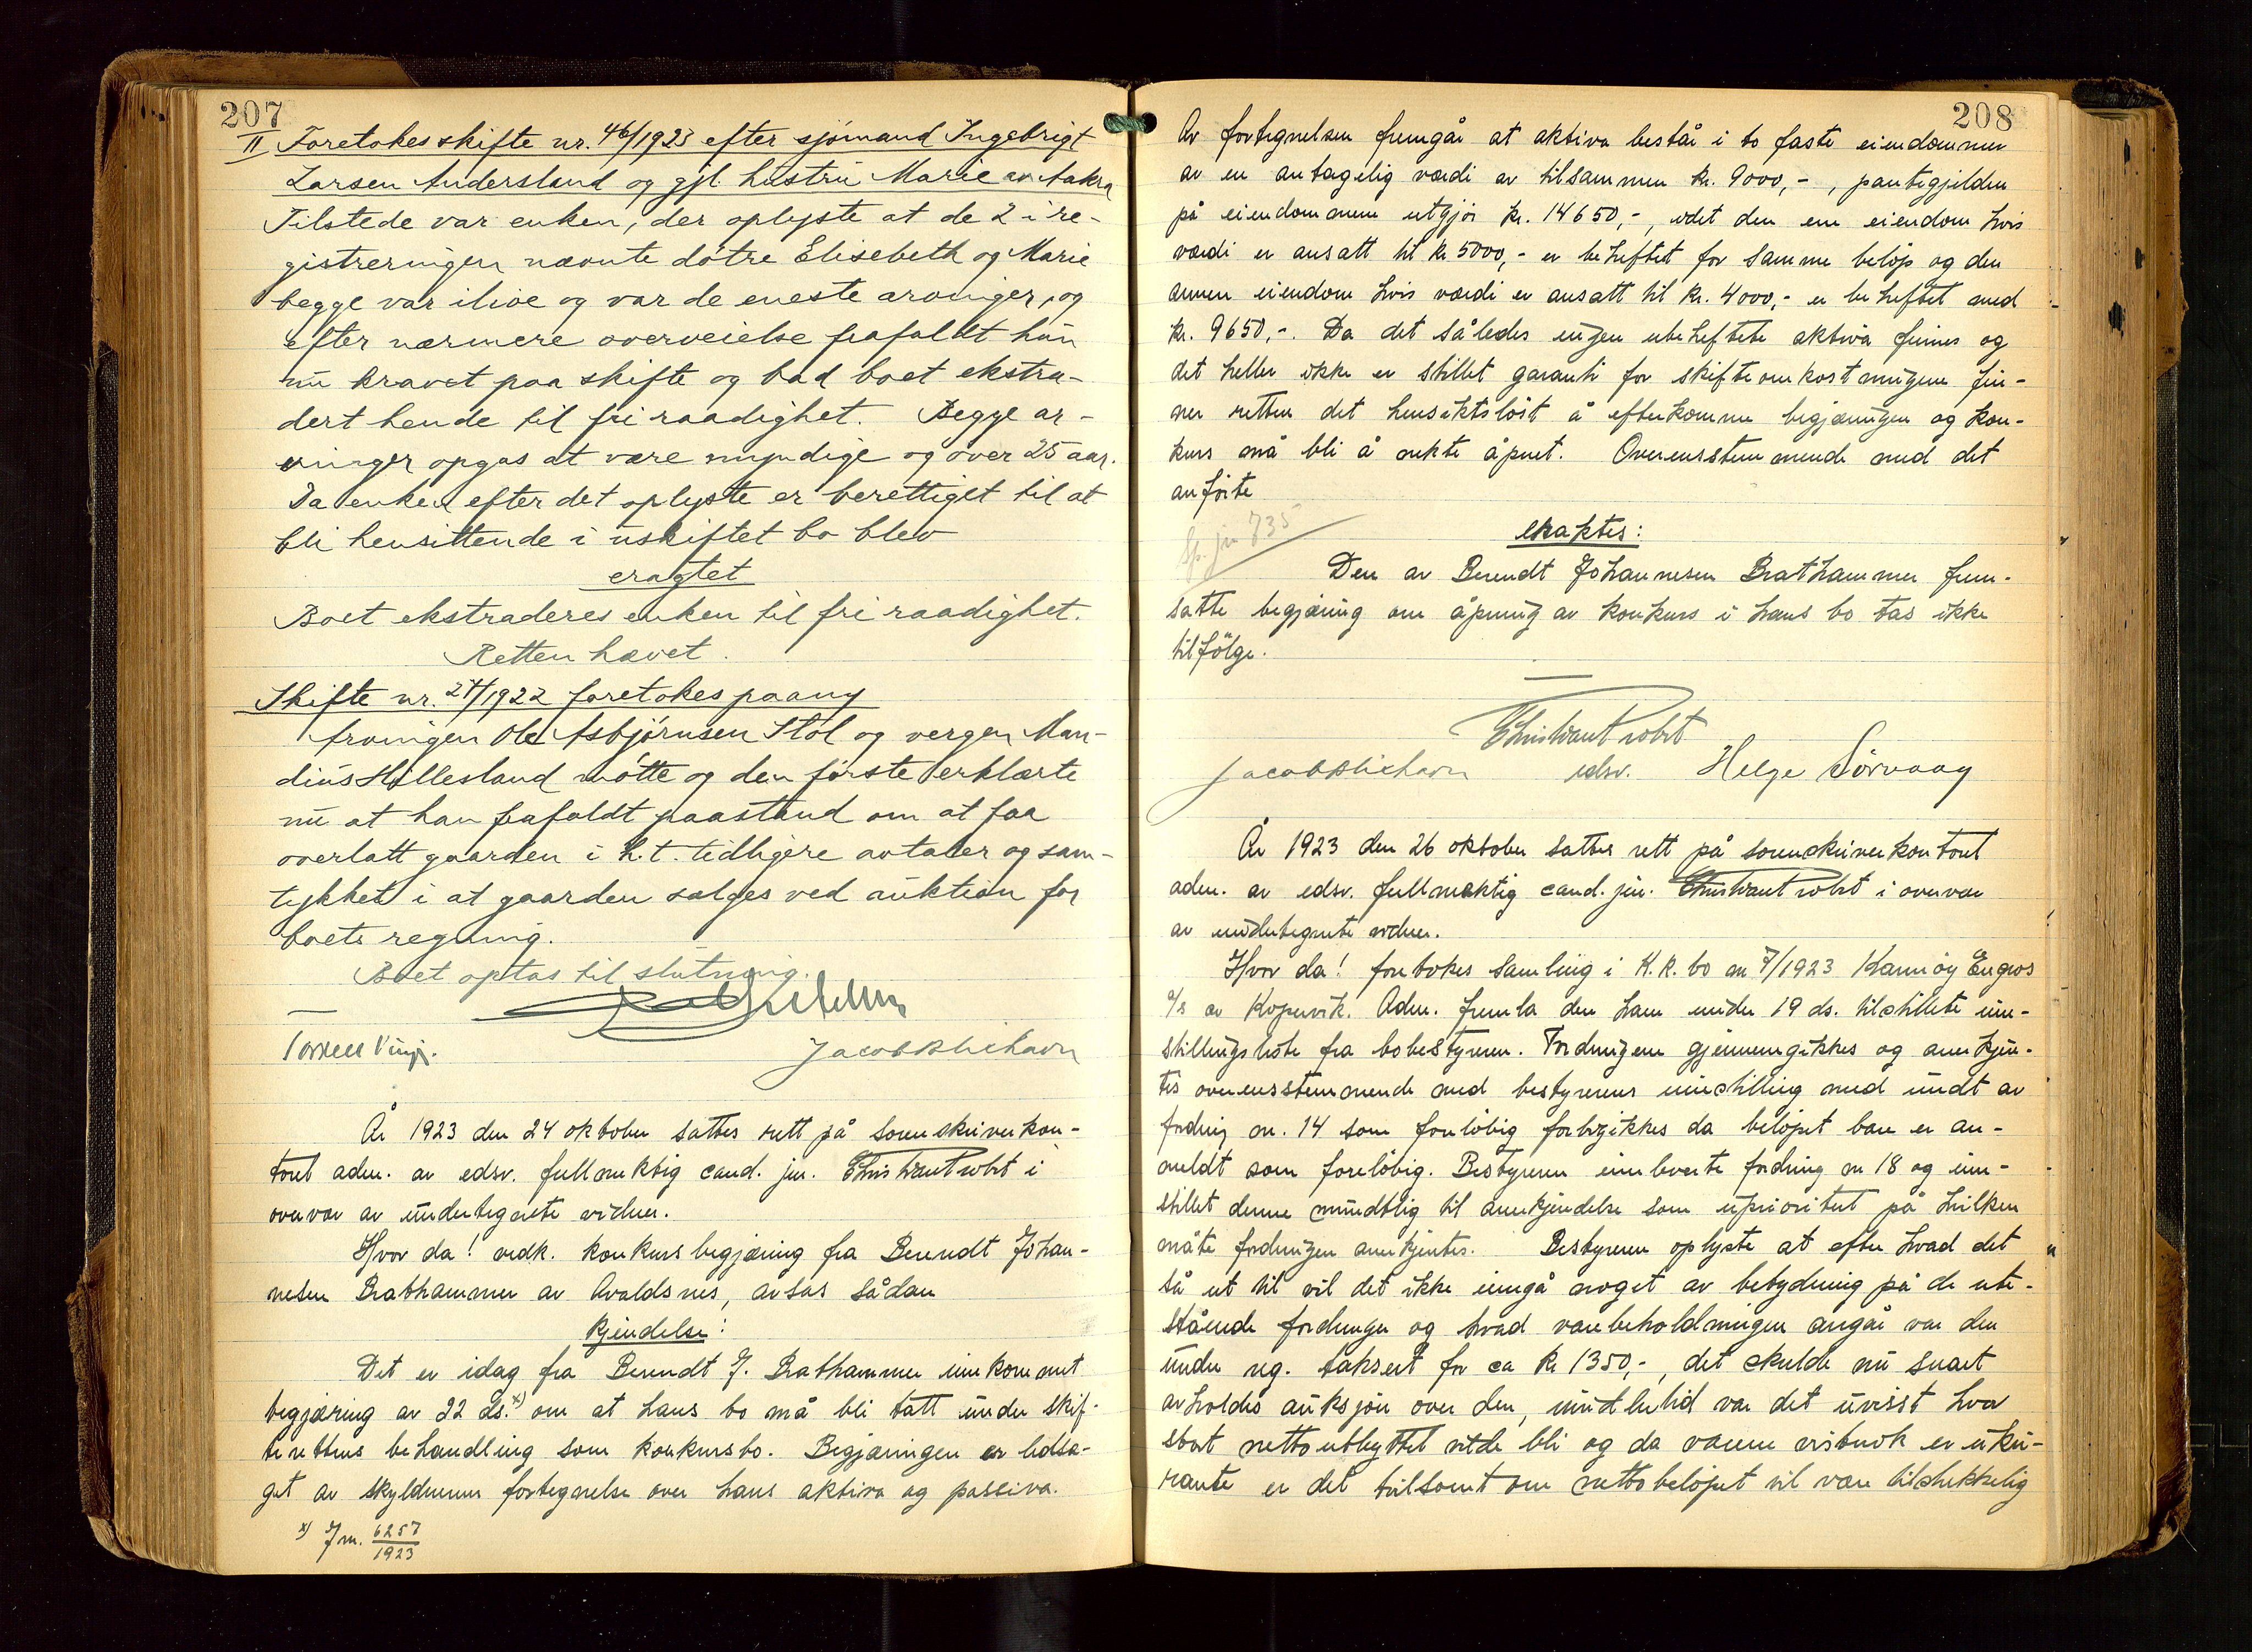 207
II Foretokes skifte nr. 46/1923 efter sjømand Ingebrigt
Larsen Andersland og gjl. hustru Marie av Aakra
Tilstede var enken, der oplyste at de 2 i re-
gistreringen nævnte døtre Elisebeth og Marie
begge var ilive og var de eneste arvinger, og
efter nærmere overveielse frafaldt hun
nu kravet paa skifte og bad boet ekstra-
dert hende til fri raadighet. Begge ar-
vinger opgas at være myndige og over 25 aar.
Da enken efter det oplyste er berettiget til at
bli hensittende i uskiftet bo blev
eragtet
Boet ekstraderes enken til fri raadighet.
Retten hævet.
Skifte nr. 24/1922 foretokes paany
Arvingen Ole Asbjørnsen Stol og vergen Man-
dius Hillesland møtte og den første erklærte
nu at han frafaldt paastand om at faa
overlatt gaarden i h.t. tidligere avtaler og sam-
tykket i at gaarden sælges ved auktion for
boets regning.
Boet optas til slutning.
Jacob Blichavn
År 1923 den 24 oktober sattes rett på sorenskriverkon-
toret adm. av edsv. fullmektig cand. jur. Chris Want Probst i
overvær av undertegnete vidner.
Hvor da! vedk. konkursbegjæring fra Berendt Johan-
nesen Brathammer av Avaldsnes, avsas sådan
kjendelse:
Det er idag fra Berendt J. Brathammer innkommet
begjæring av 22 ds. x) om at hans bo må bli tatt under skif-
terettens behandling som konkursbo. Begjæringen er ledsa-
get av skyldnerens fortegnelse over hans aktiva og passiva.
x) J nr. 6257/1923
208
Av fortegnelsen fremgår at aktiva består i to faste eiendommer
av en antagelig værdi av tilsammen kr. 9000,-, pantegjelden
på eiendommene utgjør kr. 14650,-, idet den ene eiendom hvis
værdi er ansatt til kr 5000,- er beheftet for samme beløp og den
annen eiendom hvis værdi er ansatt til kr. 4000,- er beheftet med
kr. 9650,-. Da det således ingen ubeheftete aktiva finnes og
det heller ikke er stillet garanti for skifteomkostningene fin-
ner retten det hensiktsløst å efterkomme begjæringen og kon-
kurs må bli å nekte åpnet. Overensstemmende med det
anførte
eraktes:
Den av Berendt Johannesen Brathammer frem-
satte begjæring om åpning av konkurs i hans bo tas ikke
tilfølge.
Chris Want Probst
Jacob Blichavn edsv. Helge Sörvaag
År 1923 den 26 oktober sattes rett på sorenskriverkontoret
adm. av edsv. fullmektig cand. jur. Chris Want Probst i overvær
av undertegnete vidner.
Hvor da! foretokes samling i K.K. bo nr 7/1923 Karmöy Engros
A/S av Kopervik. Adm. fremla den ham under 19 ds. tilstillete inn-
stillingsliste fra bobestyreren. Fordringene gjennemgikkes og anerkjen-
tes overensstemmende med bestyrerens innstilling med undt av
fordring nr. 14 som foreløbig forbigikkes da beløpet bare er an-
meldt som foreløbig. Bestyreren innleverte fordring nr 18 og inn-
stillet denne mundtlig til anerkjendelse som uprioritert på hvilken
måte fordringen anerkjentes. Bestyreren oplyste at efter hvad det
så ut til vil det ikke inngå noget av betydning på de ute-
stående fordringer og hvad varebeholdningen angår var den
under reg. taksert for ca kr 1350,-, det skulde nu snart
avholdes auksjon over den, imidlertid var det uvisst hvor
stort nettoutbyttet vilde bli og da varene vistnok er uku-
rante er det tvilsomt om nettobeløpet vil være tilstrekkelig